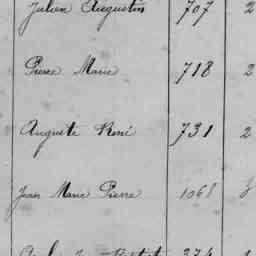 Julien Augustin 707 2
Pierre Marie 718 2
Auguste René 731 2
Jean Marie Pierre 1068